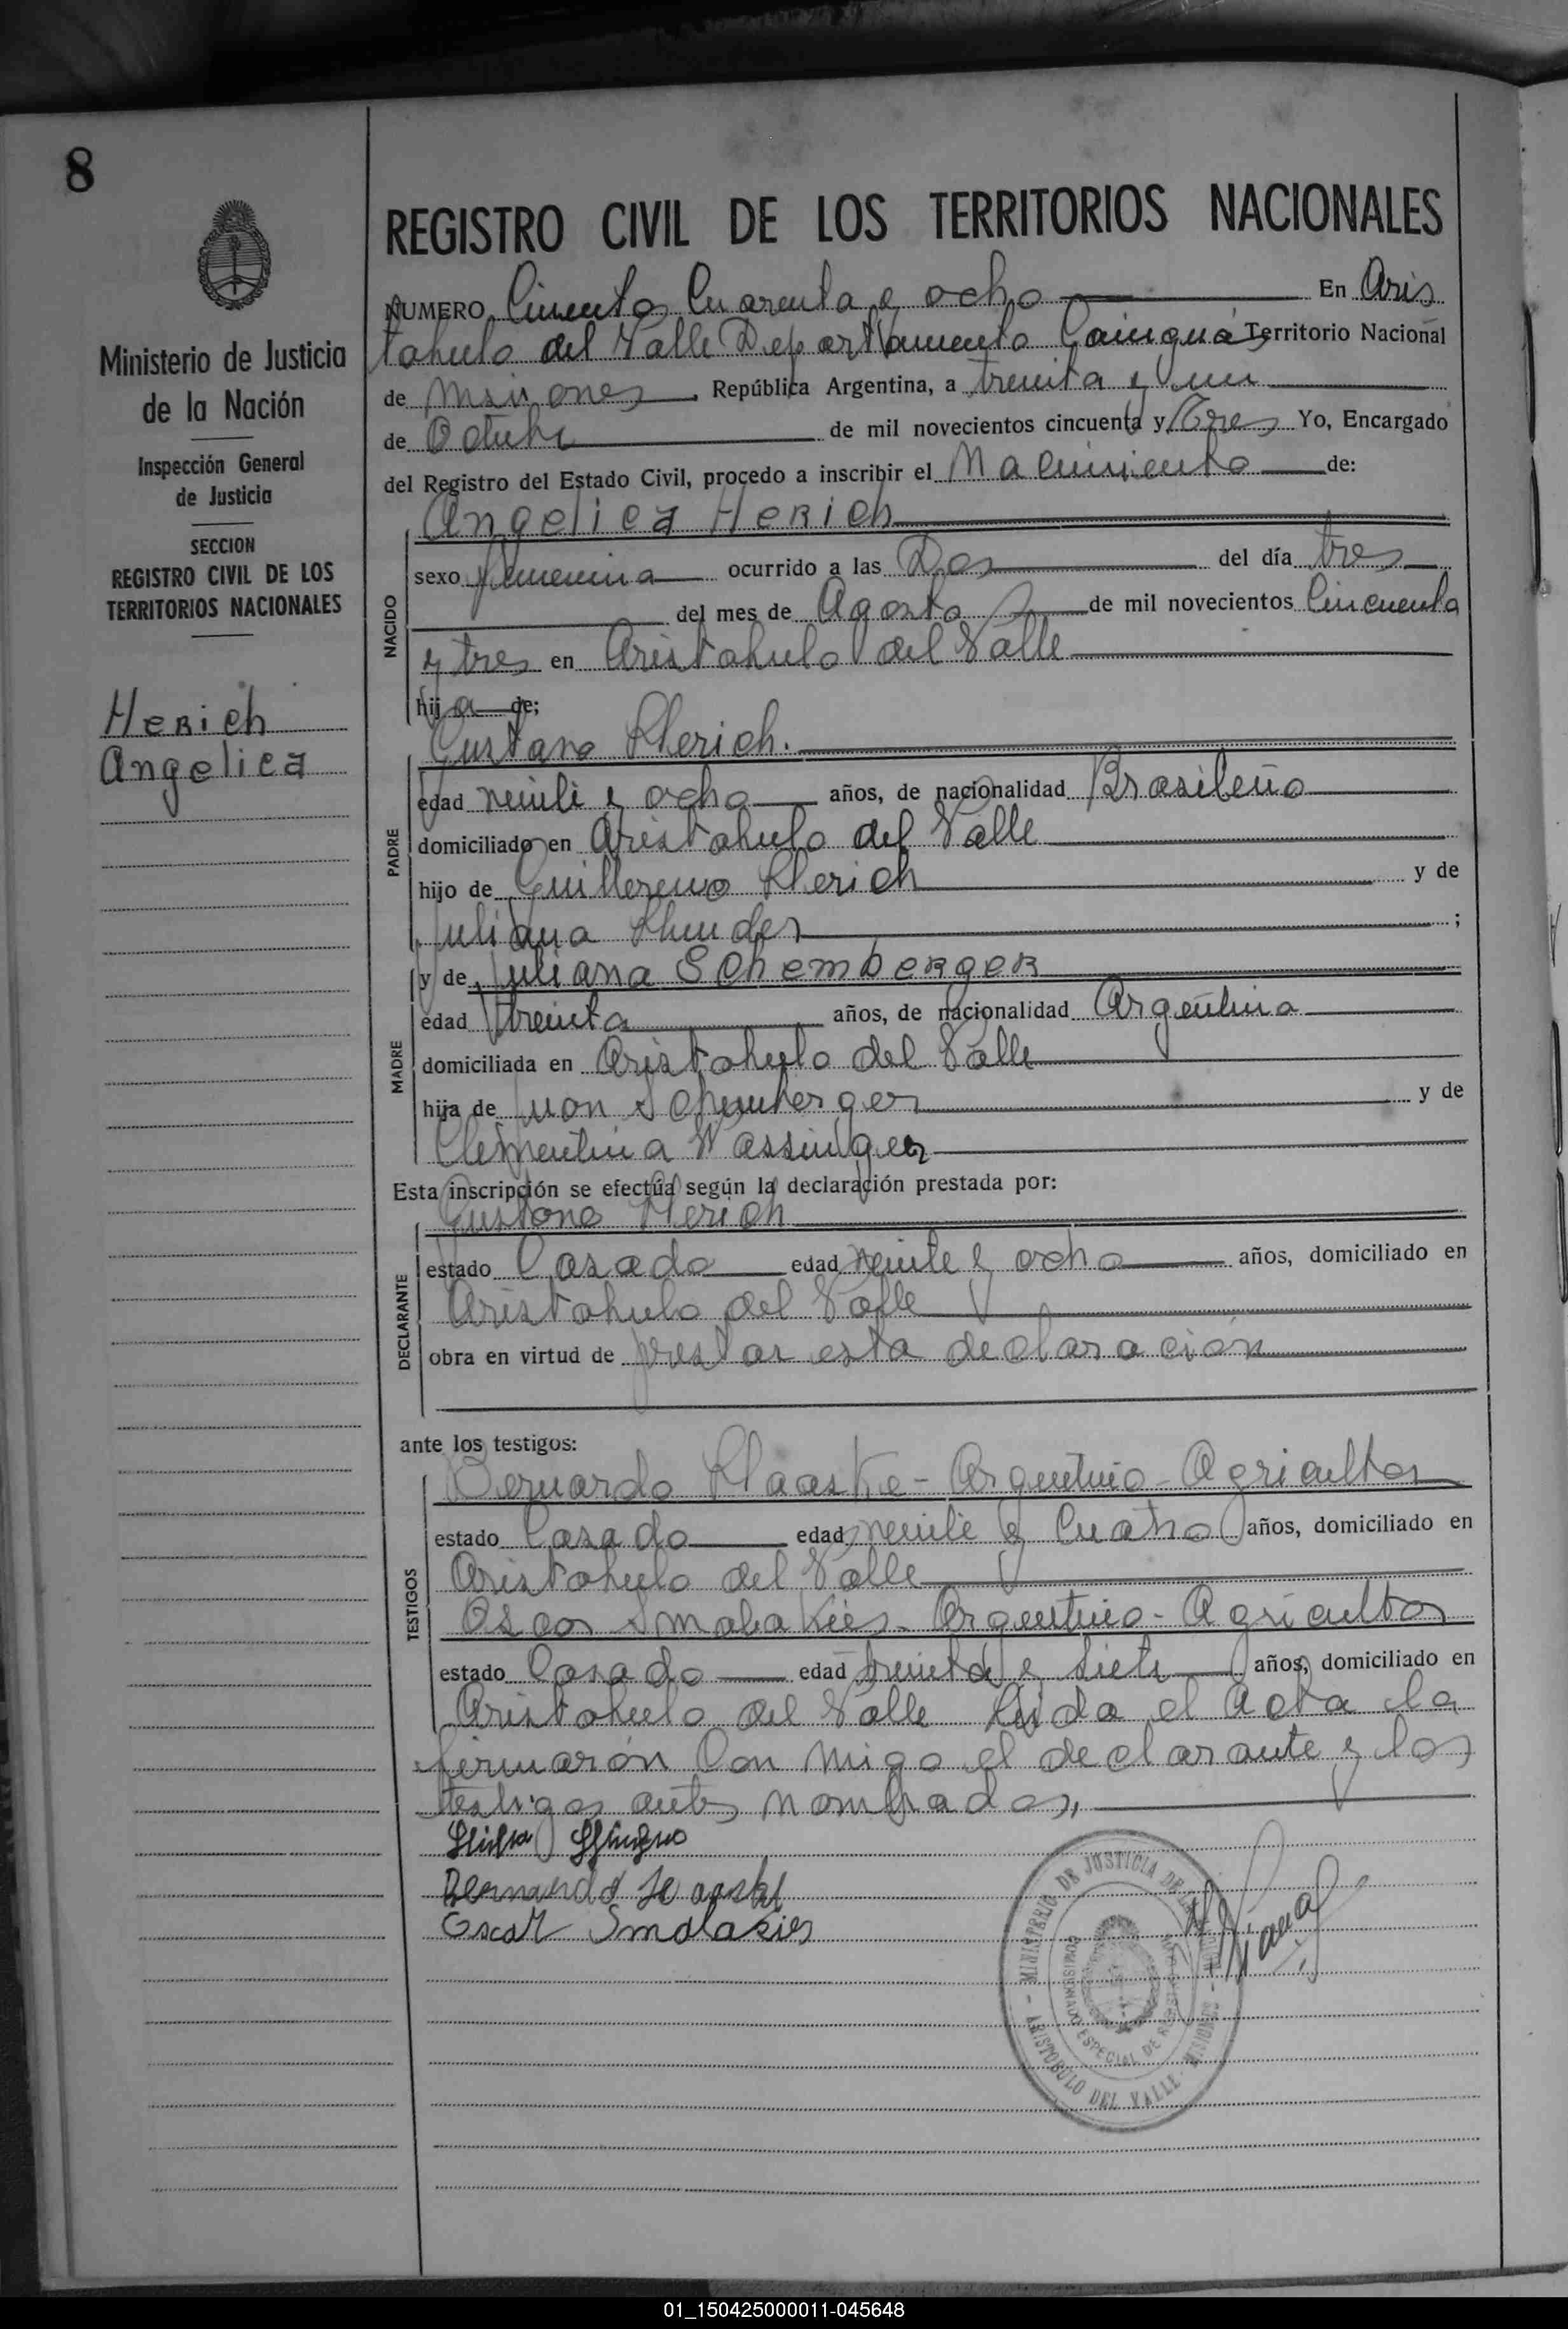 8
Ministerio de Justicia
de la Nación
Inspección General
de Justicia
SECCION
REGISTRO CIVIL DE LOS
TERRITORIOS NACIONALES
Herich
Angelica
REGISTRO CIVIL DE LOS TERRITORIOS NACIONALES
NUMERO Ciento Cuarenta y ocho En Aris
tobulo del Valle Departamento Cainguás Territorio Nacional
de Misiones, República Argentina, a treinta y un
de Octubre de mil novecientos cincuenta y Tres Yo, Encargado
del Registro del Estado Civil, procedo a inscribir el Nacimiento de:
Angelica Herich
NACIDO
sexo femenina ocurrido a las Dos del día tres
del mes de Agosto de mil novecientos Cincuenta
y tres en Aristobulo del Valle
hija de;
Gustavo Herich.
PADRE
edad veinte y ocho años, de nacionalidad Brasileño
domiciliado en Aristobulo del Valle
hijo de Guillermo Herich y de
Juliana ;
y de Juliana Schemberger
MADRE
edad treinta años, de nacionalidad Argentina
domiciliada en Aristobulo del Valle
hija de Juan Schemberger y de
Clementina Wassinger
Esta inscripción se efectúa según la declaración prestada por:
Gustavo Herich
DECLARANTE
estado Casado edad veinte y ocho años, domiciliado en
Aristobulo del Valle
obra en virtud de prestar esta declaración
ante los testigos:
TESTIGOS
Bernardo - Argentino - Agricultor
estado Casado edad veinte y Cuatro años, domiciliado en
Aristobulo del Valle
Oscar Smalakies - Argentino - Agricultor
estado Casado edad treinta y siete años, domiciliado en
Aristobulo del Valle Leida el Acta la
firmarón Con migo el declarante y los
testigos antes nombrados,
Bernardo
Oscar Smalakies
MINISTERIO DE JUSTICIA DE LA NACION
COMISIONADO ESPECIAL DE
ARISTOBULO DEL VALLE - MISIONES
01_150425000011-045648